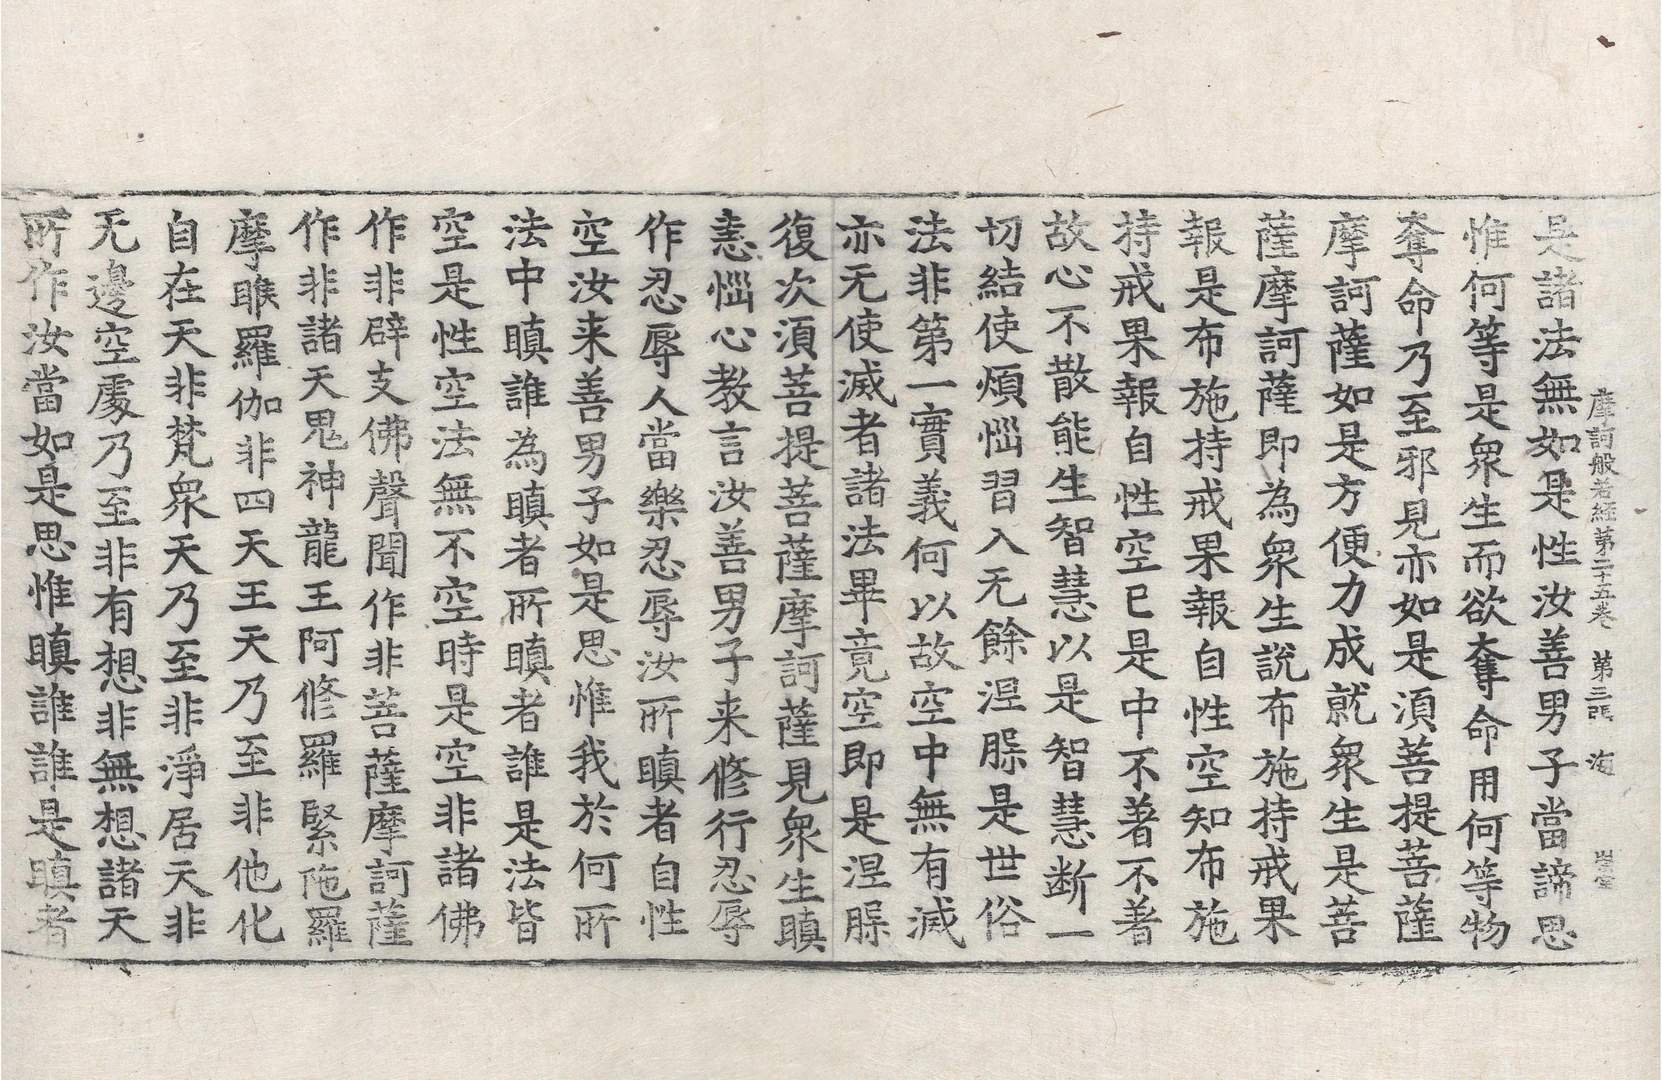 摩訶般若経第二十五卷　第三張　海
是諸法無如是性汝善男子當諦思
惟何等是衆生而欲奪命用何等物
奪命乃至邪見亦如是須菩提菩薩
摩訶薩如是方便力成就衆生是菩
薩摩訶薩即為衆生說布施持戒果
報是布施持戒果報自性空知布施
持戒果報自性空已是中不著不著
故心不散能生智慧以是智慧断一
切結使煩惱習入无餘涅槃是世俗
法非第一實義何以故空中無有滅
亦无使滅者諸法畢竟空即是涅槃
復次須菩提菩薩摩訶薩見衆生瞋
恚惱心教言汝善男子来修行忍辱
作忍辱人當樂忍辱汝所瞋者自性
空汝来善男子如是思惟我於何所
法中瞋誰為瞋者所瞋者誰是法皆
空是性空法無不空時是空非諸佛
作非辟支佛聲聞作非菩薩摩訶薩
作非諸天鬼神龍王阿修羅緊陁羅
摩睺羅伽非四天王天乃至非他化
自在天非梵衆天乃至非淨居天非
无邊空處乃至非有想非無想諸天
所作汝當如是思惟瞋誰誰是瞋者